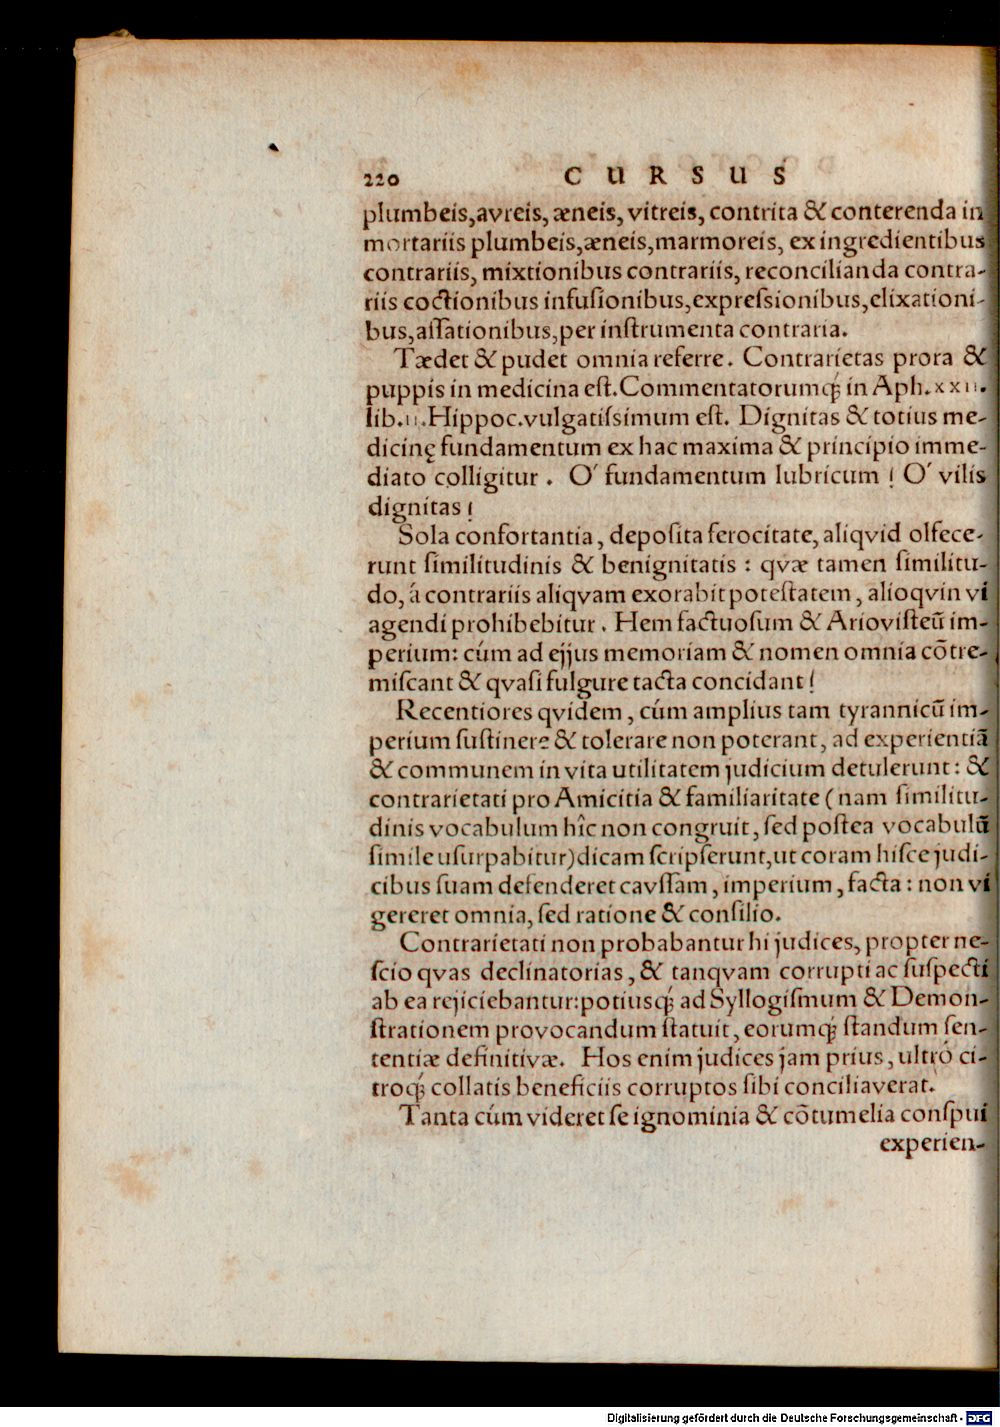 220 CURSUS
plumbeis,avreis, æneis, vitreis, contrita & conterenda in
mortariis plumbeis,æneis,marmoreis, ex ingredientibus
contrariis, mixtionibus contrariis, reconcilianda contra-
riis coctionibus infuſionibus,expreſsionibus,elixationi-
bus,aſſationibus,per inſtrumenta contraria.
Tædet & pudet omnia referre. Contrarietas prora &
puppis in medicina eſt.Commentatorumq́; in Aph.xxii.
lib.ii.Hippoc.vulgatiſsimum eſt. Dignitas & totius me-
dicinę fundamentum ex hac maxima & principio imme-
diato colligitur. O´ fundamentum lubricum! O´ vilis
dignitas!
Sola confortantia, depoſita ferocitate, aliqvid olfece-
runt ſimilitudinis & benignitatis: qvæ tamen ſimilitu-
do, á contrariis aliqvam exorabit poteſtatem, alioqvin vi
agendi prohibebitur. Hem factuoſum & Arioviſteū im-
perium: cúm ad ejjus memoriam & nomen omnia cōtre-
miſcant & qvaſi fulgure tacta concidant!
Recentiores qvidem, cúm amplius tam tyrannicū im-
perium ſuſtinere & tolerare non poterant, ad experientiā
& communem in vita utilitatem judicium detulerunt: &
contrarietati pro Amicitia & familiaritate (nam ſimilitu-
dinis vocabulum hîc non congruit, ſed poſtea vocabulū
ſimile uſurpabitur)dicam ſcripſerunt,ut coram hiſce judi-
cibus ſuam defenderet cavſſam, imperium, facta: non vi
gereret omnia, ſed ratione & conſilio.
Contrarietati non probabantur hi judices, propter ne-
ſcio qvas declinatorias, & tanqvam corrupti ac ſuſpecti
ab ea rejiciebantur:potiusq́; ad Syllogiſmum & Demon-
ſtrationem provocandum ſtatuit, eorumq́; ſtandum ſen-
tentiæ definitivæ. Hos enim judices jam prius, ultró ci-
troq́; collatis beneficiis corruptos ſibi conciliaverat.
Tanta cúm videret ſe ignominia & cōtumelia conſpui
experien-
Digitalisierung gefördert durch die Deutsche Forschungsgemeinschaft - DFG